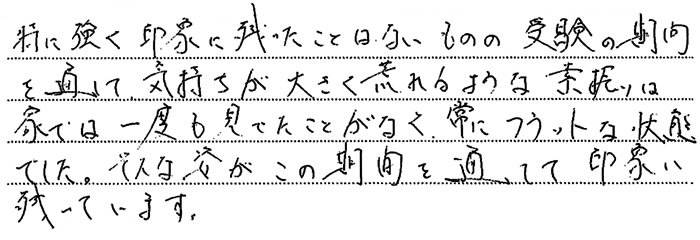 特に強く印象に残ったことはないものの受験の期間
を通して、気持ちが大きく荒れるような素振りは
家では一度も見てたことがなく、常にフラットな状態
でした。そんな姿がこの期間を通して印象に
残っています。